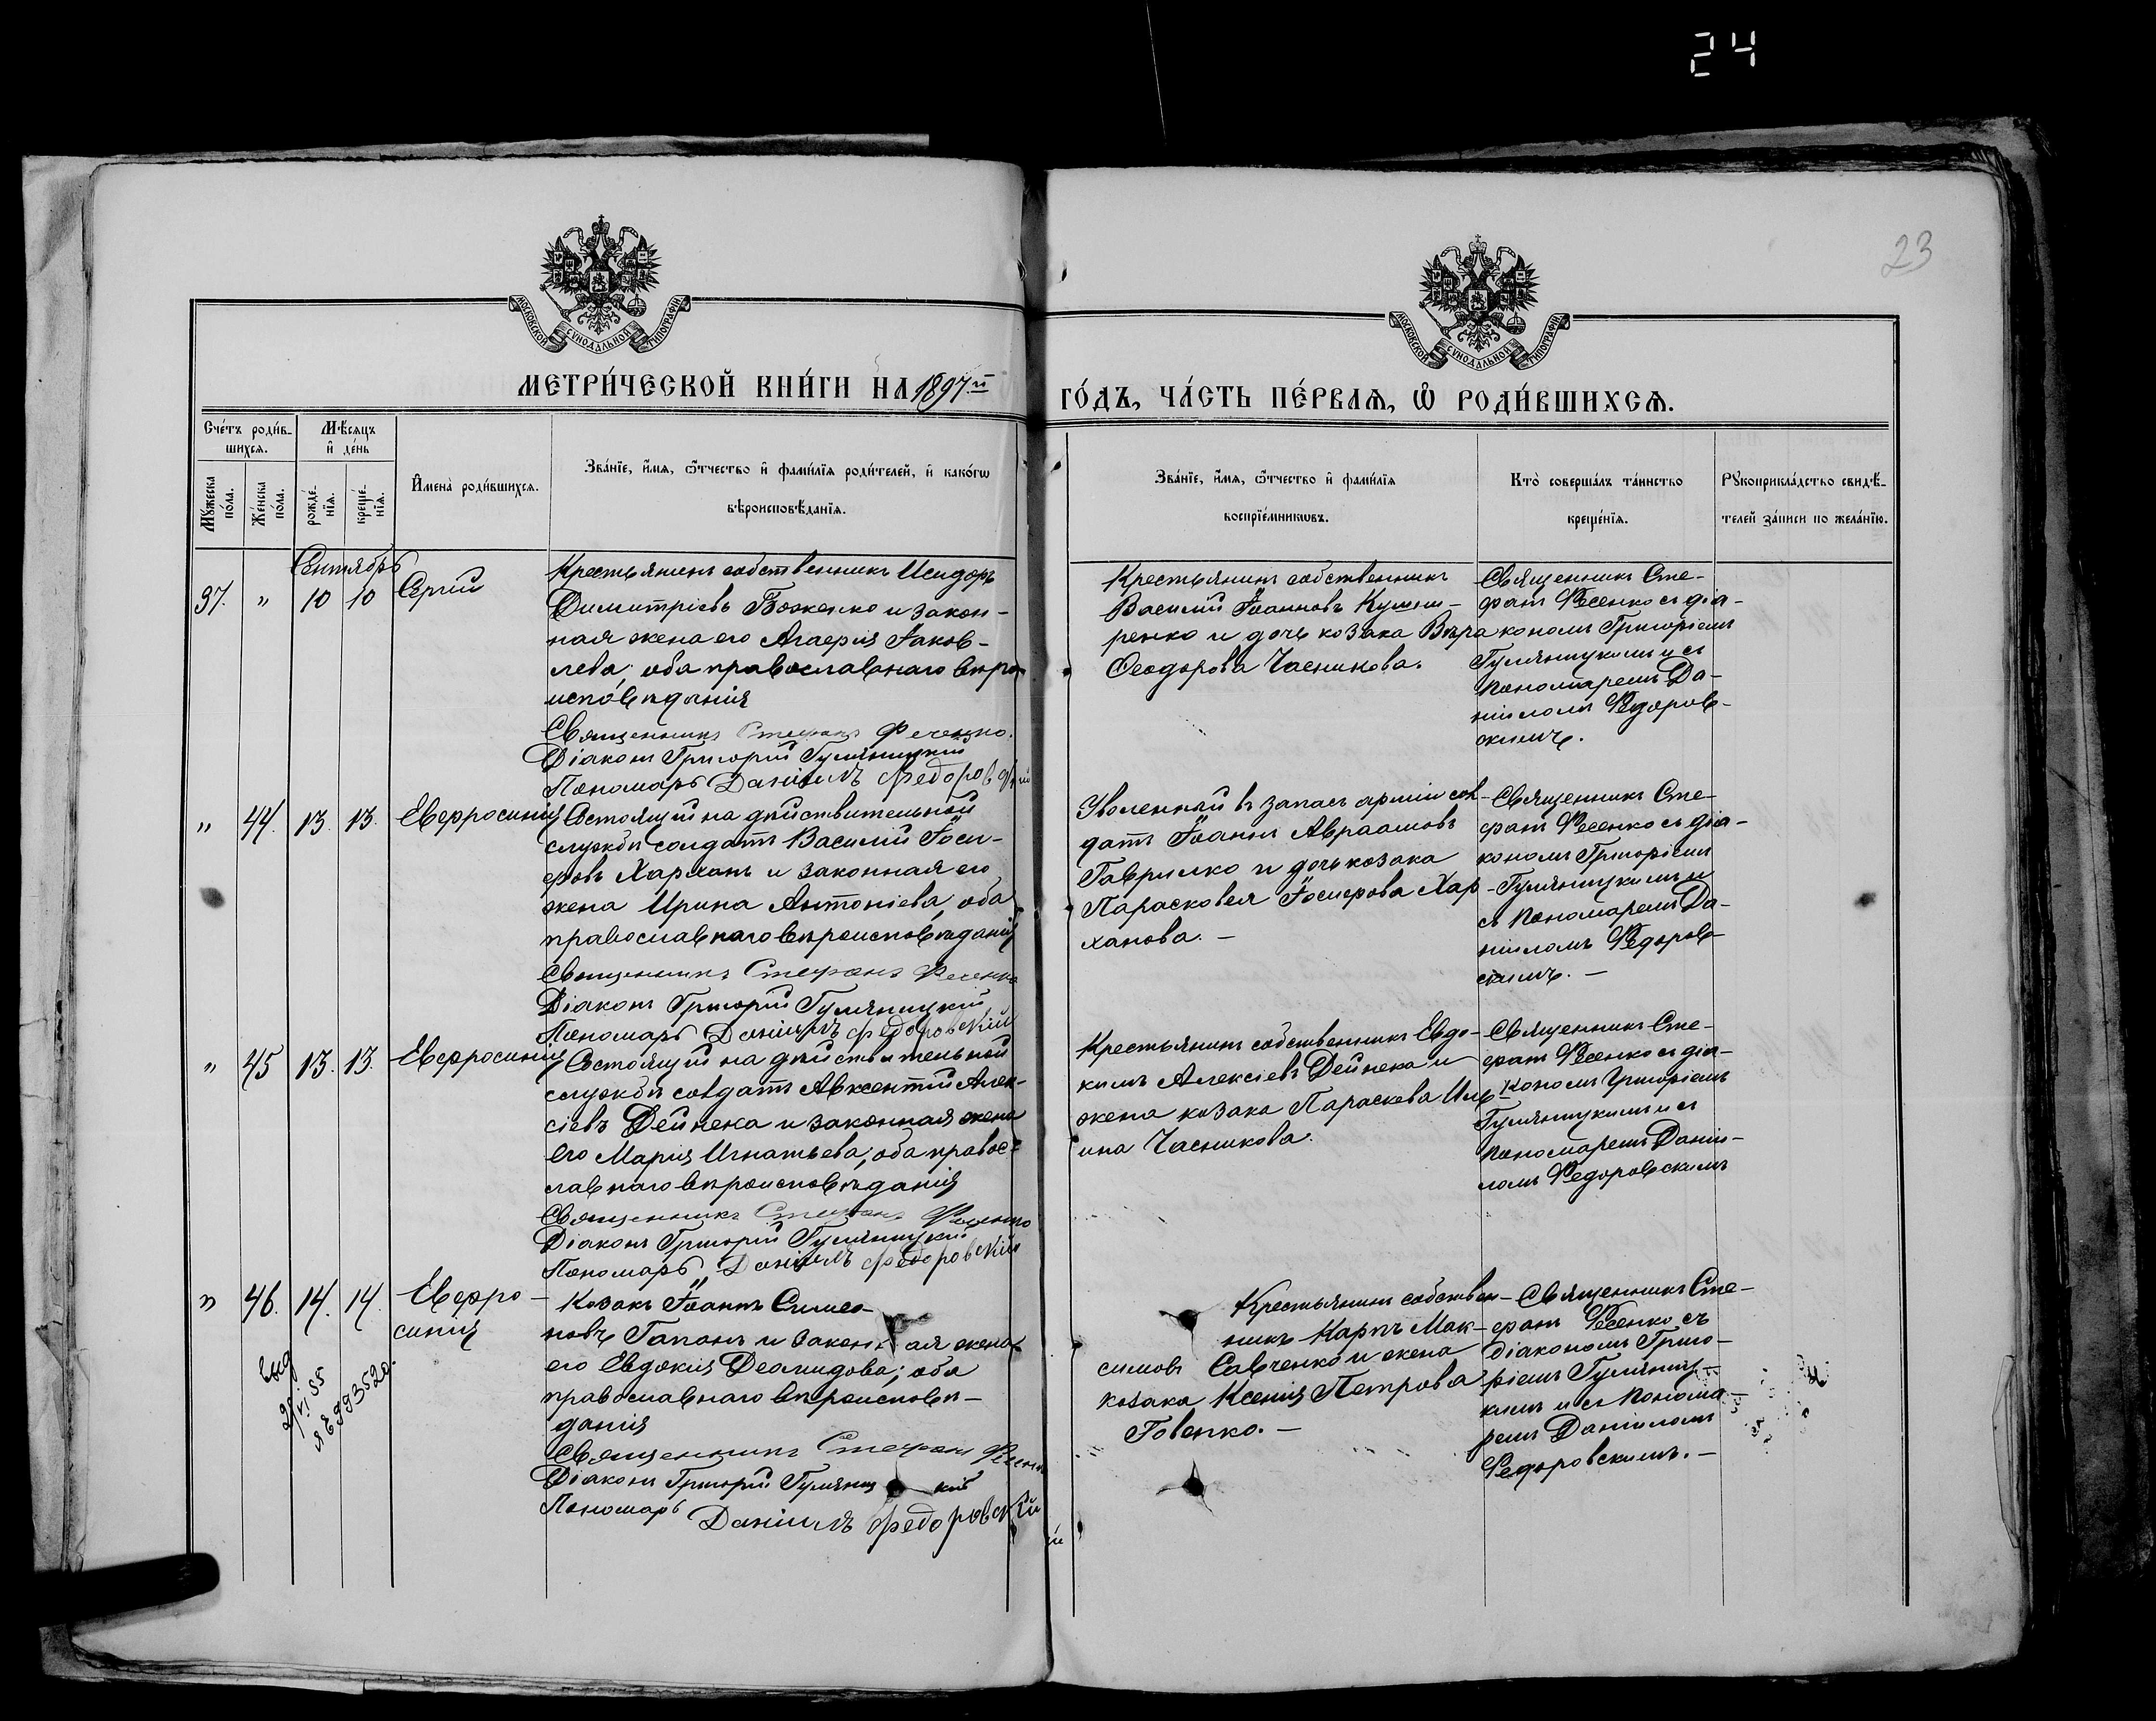 24
23
МОСКОВСКОЙ СѴНОДАЛЬНОЙ ТИПОГРАФІИ
МОСКОВСКОЙ СѴНОДАЛЬНОЙ ТИПОГРАФІИ
МЕТРИ́ЧЕСКОЙ КНИ́ГИ НА 1897й ГО́ДЪ, ЧА́СТЬ ПЕ́РВАѦ, Ѽ РОДИ́ВШИХСѦ.
Сче́тъ роди́в-
шихсѧ.
Мѣ́сѧцъ
и҆ де́нь
Мꙋ́жеска
по́ла.
Же́нска
по́ла.
рожде́-
нїѧ.
креще́-
нїѧ.
И҆мена̀ роди́вшихсѧ.
Зва́нїе, и҆́мѧ, ѻ҆́тчество и҆ фами́лїѧ роди́телей, и҆ како́гѡ
вѣроисповѣ́данїѧ.
Зва́нїе, и҆́мѧ, ѻ҆́тчество и҆ фами́лїѧ
воспрїе́мникѡвъ.
Кто̀ соверша́лъ та́инство
креще́нїѧ.
Рꙋкоприкла́дство свидѣ́-
телей за́писи по жела́нїю.
Сентябрь
37. „ 10 10 Сергій
Крестьянинъ собственникъ Исидоръ
Димитріевъ Боженко и закон-
ная жена его Агаѳія Іаков-
лева; оба православнаго вѣро
исповѣданія
Священникъ Стефанъ Фесенко.
Діаконъ Григорій Гумяницкій
Пономарь Даніилъ Федоровскій
Крестьянинъ собственникъ
Василій Іоанновъ
ренко и дочь козака Вѣра
Ѳеодорова Часникова.
Священникъ Сте-
фанъ Фесенко съ діа-
кономъ Григоріемъ
Гумяницкимъ и съ
пономаремъ Да-
ніиломъ Федоров-
скимъ.
„ 44. 13. 13. Евфросинія
Состоящій на дѣйствительной
службѣ солдатъ Василій Іоси-
фовъ Харханъ и законная его
жена Ирина Антоніева, оба
православнаго вѣроисповѣданія
Священникъ Стефанъ Фесенко
Діаконъ Григорій Гумяницкій
Пономарь Даніилъ Федоровскій
Уволенный въ запасъ арміи сол-
датъ Іоаннъ Авраамовъ
Гаврилко и дочь козака
Парасковея Іосифова Хар-
ханова. —
Священникъ Сте-
фанъ Фесенко съ діа-
кономъ Григоріемъ
Гумяницкимъ и
съ пономаремъ Да-
ніиломъ Федоров-
скимъ. —
„ 45 13. 13. Евфросинія
Состоящій на дѣйствительной
службѣ солдатъ Авксентій Алек-
сіевъ Дейнека и законная жена
его Марія Игнатьева; оба правос-
лавнаго вѣроисповѣданія
Священникъ Стефанъ Фесенко
Діаконъ Григорій Гумяницкій
Пономарь Даніилъ Федоровскій
Крестьянинъ собственникъ Евдо-
кимъ Алексіевъ Дейнека и
жена козака Параскева Иль-
ина Часникова.
Священникъ Сте-
фанъ Фесенко съ діа-
кономъ Григоріемъ
Гумяницкимъ и съ
пономаремъ Даніи-
ломъ Федоровскимъ
„ 46. 14. 14. Евфро-
синія
Козакъ Іоаннъ Симео-
новъ Гапонъ и законная жена
его Евдокія Демидова; оба
православнаго вѣроисповѣ-
данія
Священникъ Стефанъ Фесенко
Діаконъ Григорій Гумяницкій
Пономарь Даніилъ Федоровскій
Крестьянинъ собствен-
никъ Карпъ Мак-
симовъ Савченко и жена
козака Ксенія Петрова
Говенко. —
Священникъ Сте-
фанъ Фесенко съ
діакономъ Григо-
ріемъ Гумяниц-
кимъ и съ понома-
ремъ Даніиломъ
Федоровскимъ. —